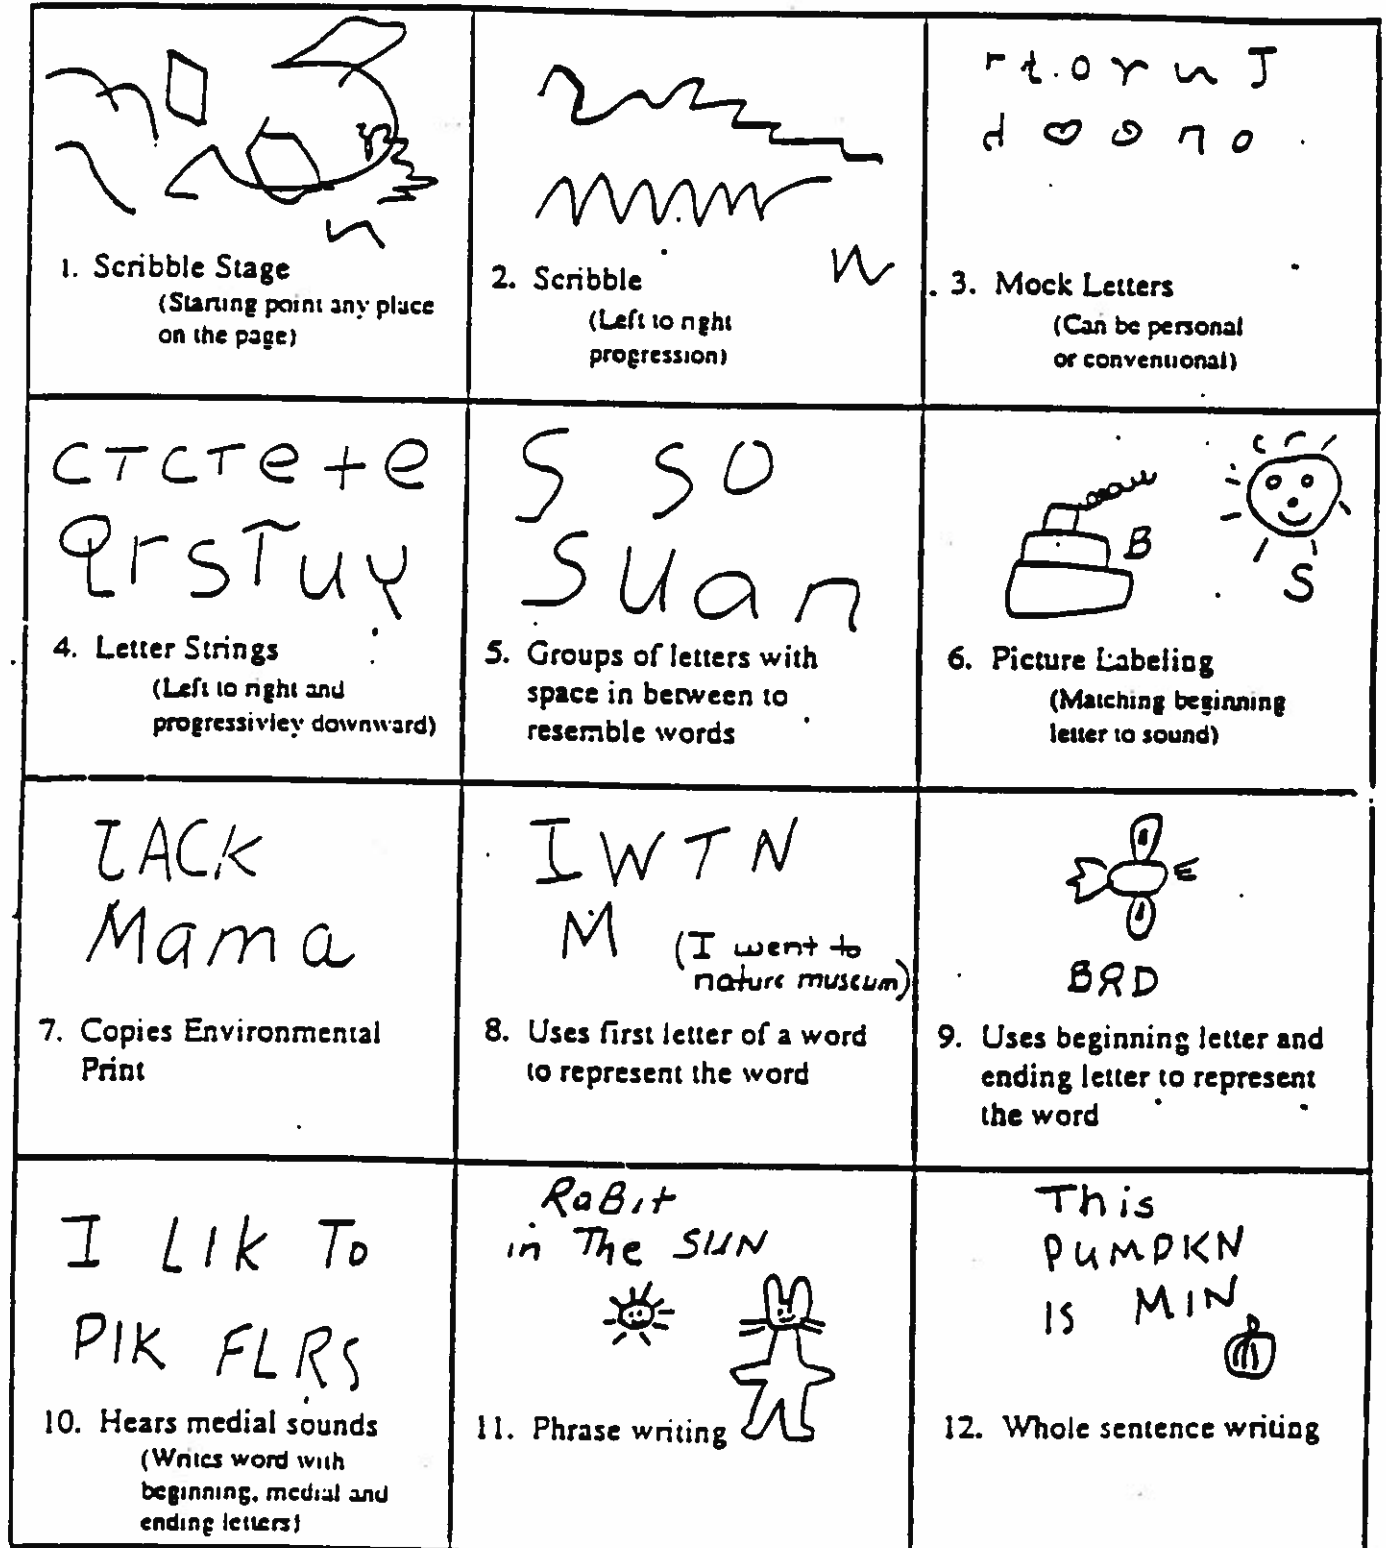 r t . o r u J
d o o n o
1. Scribble Stage
(Starting point any place
on the page)
2. Scribble
(Left to right
progression)
3. Mock Letters
(Can be personal
or conventional)
C T C T e t e
Q r S T u y
4. Letter Strings
(Left to right and
progressivley downward)
S SO
S u a n
5. Groups of letters with
space in between to
resemble words
B
S
6. Picture Labeling
(Matching beginning
letter to sound)
ZACK
Mama
7. Copies Environmental
Print
I W T N
M (I went to
nature museum)
8. Uses first letter of a word
to represent the word
BRD
9. Uses beginning letter and
ending letter to represent
the word
I LIK To
PIK FLRS
10. Hears medial sounds
(Writes word with
beginning, medial and
ending letters)
RaBit
in The SUN
11. Phrase writing
This
PUMPKN
IS MIN
12. Whole sentence writing